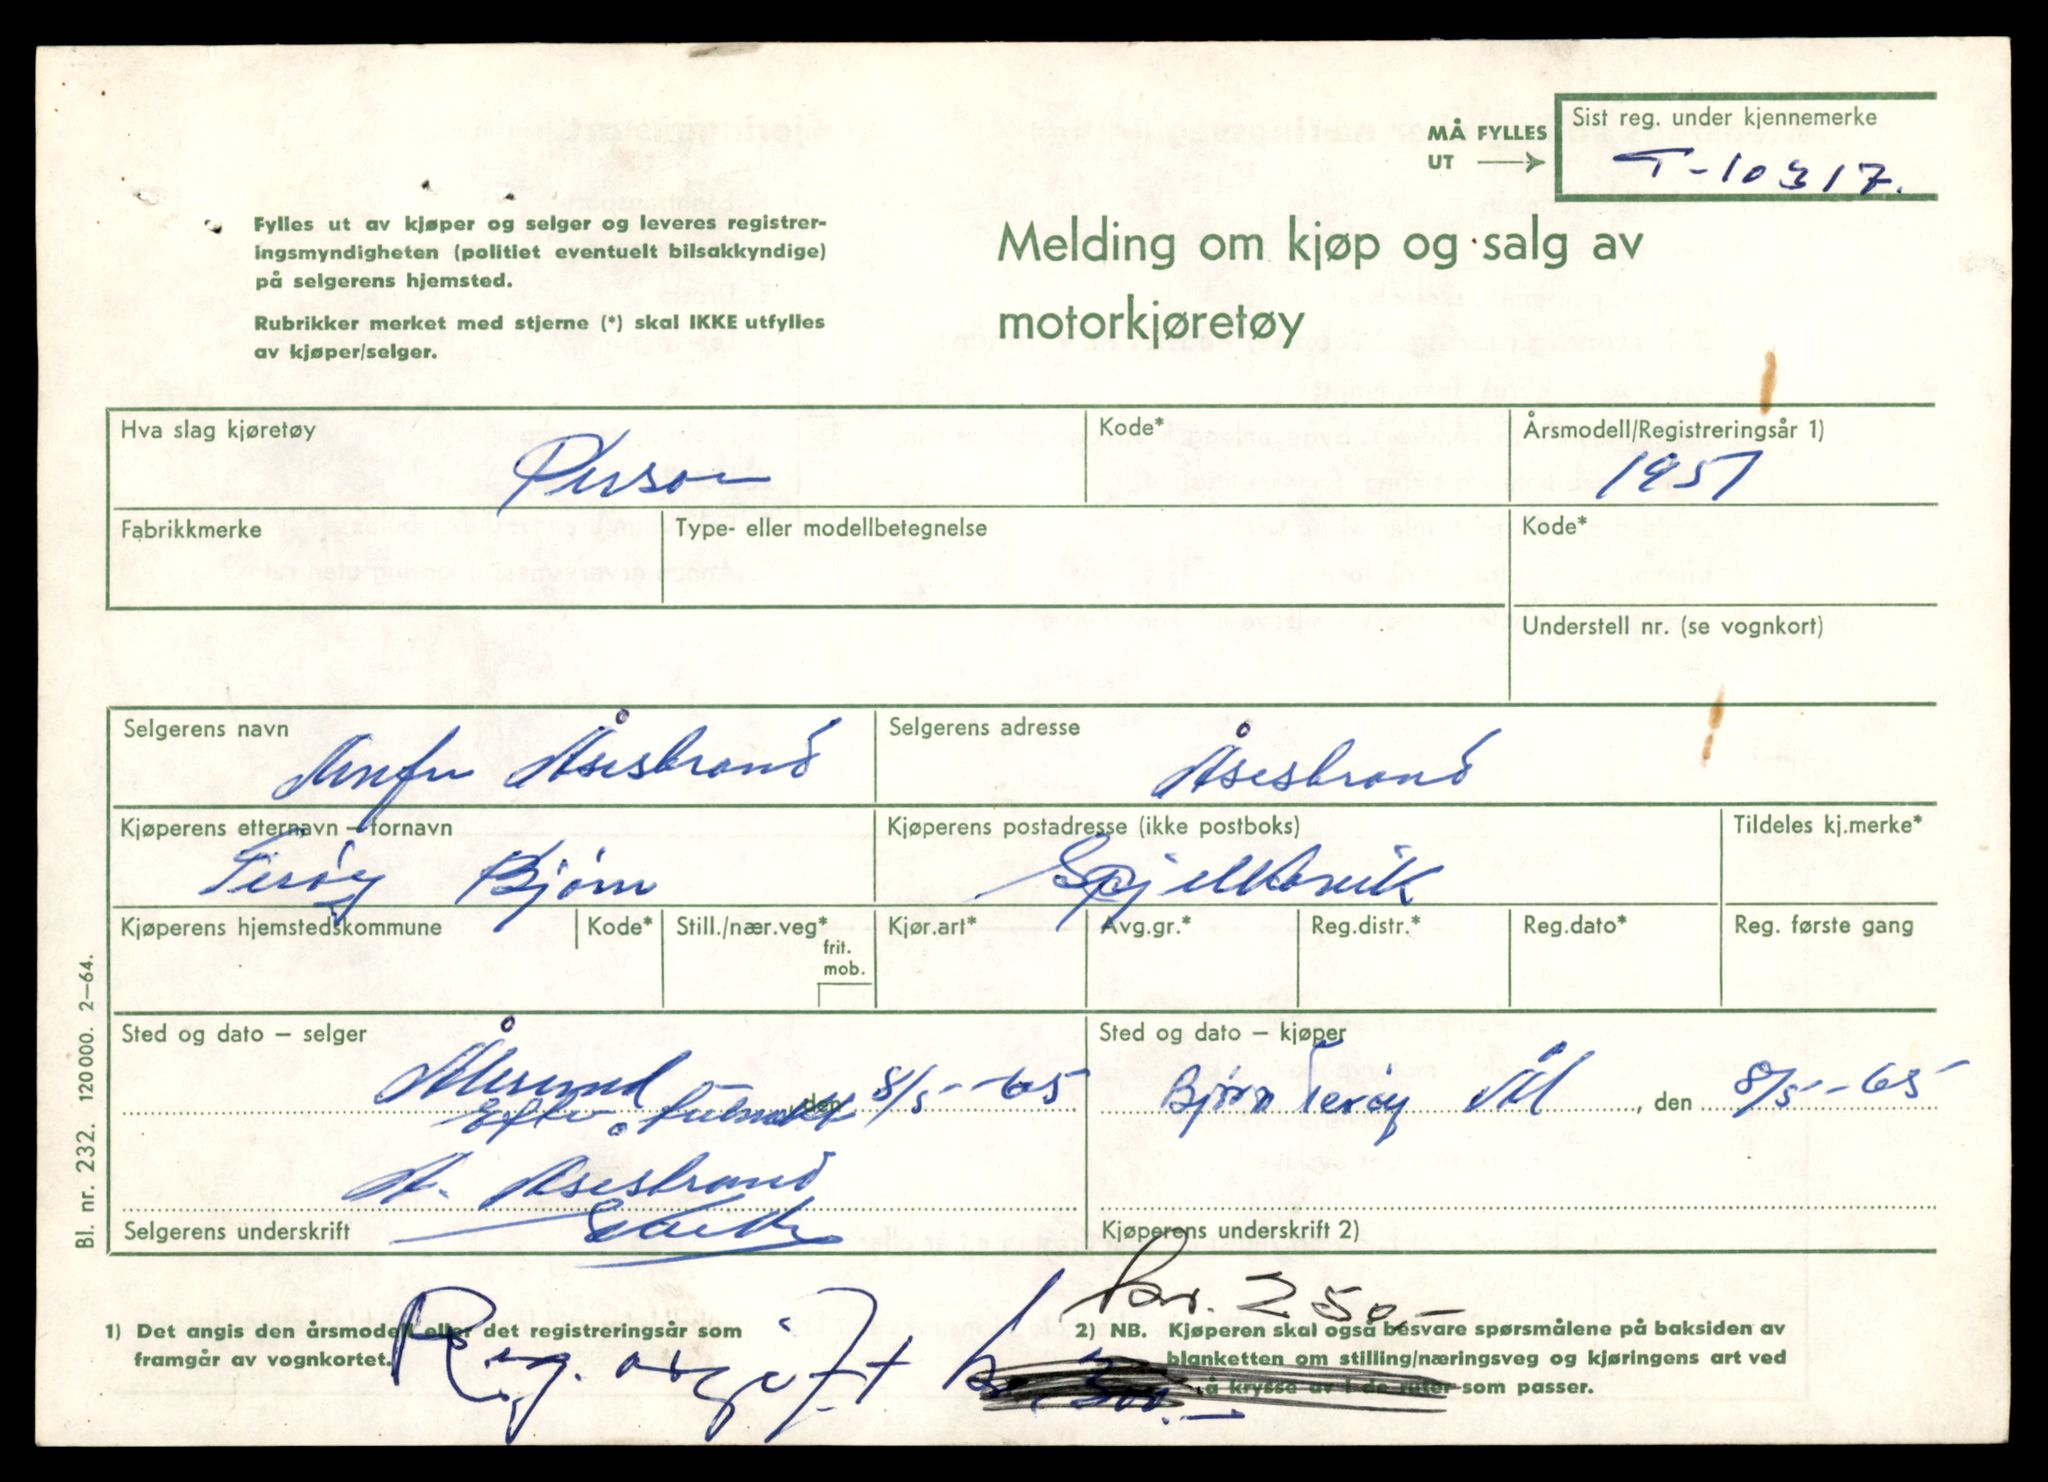 Sist reg. under kjennemerke
MÅ FYLLES
UT
T-10317.
Fylles ut av kjøper og selger og leveres registrer-
ingsmyndigheten (politiet eventuelt bilsakkyndige)
på selgerens hjemsted.
Rubrikker merket med stjerne (*) skal IKKE utfylles
av kjøper/selger.
Melding om kjøp og salg av
motorkjøretøy
Hva slag kjøretøy
Person
Kode*
Årsmodell/Registreringsår 1)
1951
Fabrikkmerke
Type- eller modellbetegnelse
Kode*
Understell nr. (se vognkort)
Selgerens navn
Åsestrand
Selgerens adresse
Åsestrand
Kjøperens etternavn – fornavn
Terøy Bjørn
Kjøperens postadresse (ikke postboks)
Spjelkavik
Tildeles kj.merke*
Kjøperens hjemstedskommune
Kode*
Still./nær.veg*
frit.
mob.
Kjør.art*
Avg.gr.*
Reg.distr.*
Reg.dato*
Reg. første gang
Sted og dato – selger
Ålesund, den 8/5-65
Efter fullmakt
A. Åsestrand
Selgerens underskrift
Sted og dato – kjøper
Bjørn Terøy Ål, den 8/5-65
Kjøperens underskrift 2)
kr. 250,-
Reg. avgift
1) Det angis den årsmodell eller det registreringsår som
framgår av vognkortet.
2) NB. Kjøperen skal også besvare spørsmålene på baksiden av
blanketten om stilling/næringsveg og kjøringens art ved
å krysse av i de ruter som passer.
Bl. nr. 232. 120000. 2–64.